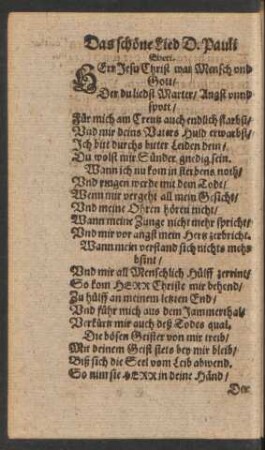 Das schöne Lied D. Pauli
Eberi.
HErr Jesu Christ war Mensch vnd
Gott/
Der du liedst Marter/ Angst vnnd
spott/
Für mich am Creutz auch endlich starbst/
Vnd mir deins Vaters Huld erwarbst/
Ich bitt durchs bitter Leiden dein/
Du wolst mir Sünder gnedig sein.
Wann ich nu kom in sterbens noth/
Vnd ringen werde mit dem Todt/
Wenn mir vergeht all mein Gesicht/
Vnd meine Ohren hören nicht/
Wann meine Zunge nicht mehr spricht/
Vnd mir vor angst mein Hertz zerbricht.
Wann mein verstand sich nichts mehr
bsint/
Vnd mir all Menschlich Hülff zerrint/
So kom HERR Christe mir behend/
Zu hülff an meinem letzten End/
Vnd führ mich aus dem Jammerthal/
Verkürtz mir auch deß Todes qual.
Die bösen Geister von mir treib/
Mit deinem Geist stets bey mir bleib/
Biß sich die Seel vom Leib abwend.
So nim sie HERR in deine Händ/
Der